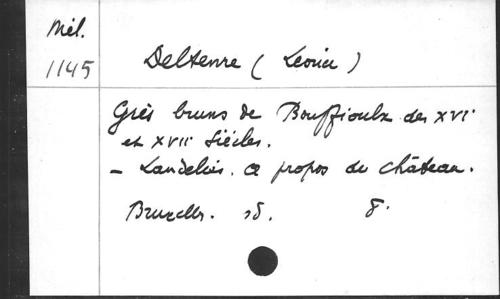 Mél.
1145
Deltenre (Léonce)
Grès bruns de Bouffioulx des XVIe
et XVIIe Siècles.
- Landelies. A propos du château.
Bruxelles. sd. 8.